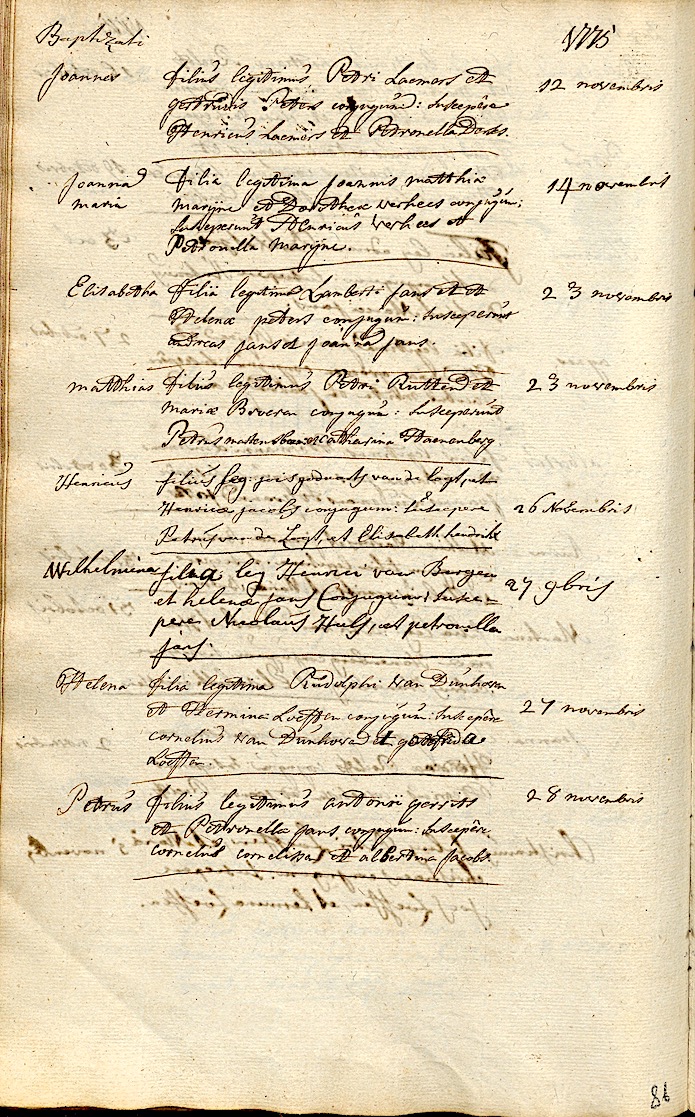 Baptizati 1775
Joannes filius legitimus Petri Laemers et 12 novembris
gertrudis Peters conjugum: suscepêre
Henricus Laemers et Petronella Derks.
Joanna filia legitima Joannis matthiæ 14 novembris
maria marijne et Dorotheæ verhees conjugum:
susceperunt Henricus verhees et
Petronella marijne.
Elisabetha filia legitima Lamberti jans et 23 novembris
Helenæ peters conjugum: susceperunt
andreas jans et joanna jans.
matthias filius legitimus Petri Rutten et 23 novembris
mariæ Boveren conjugum: susceperunt
Petrus et catharina Haenenberg
Henricus filius leg: godvaerts van de logt, et
Henricæ jacobs conjugum: suscepere 26 Novembris
Petrus van der Logt, et Elisabeth hendrikx
Wilhelmina filia leg Henrici van Bergen 27 9bris
et helenæ jans Conjugum: susce-
pere Nicolaus Huls, et petronella
jans.
Helena filia legitima Rudolphi van Dunhoven
et Hermina Loeffen conjugum: suscepêre 27 novembris
cornelius van Dunhoven et godefrida
Loeffen
Petrus filius legitimus antonii gerrits 28 novembris
et Petronella jans conjugum: suscepêre
cornelius cornelissen et albertina jacobs.
86